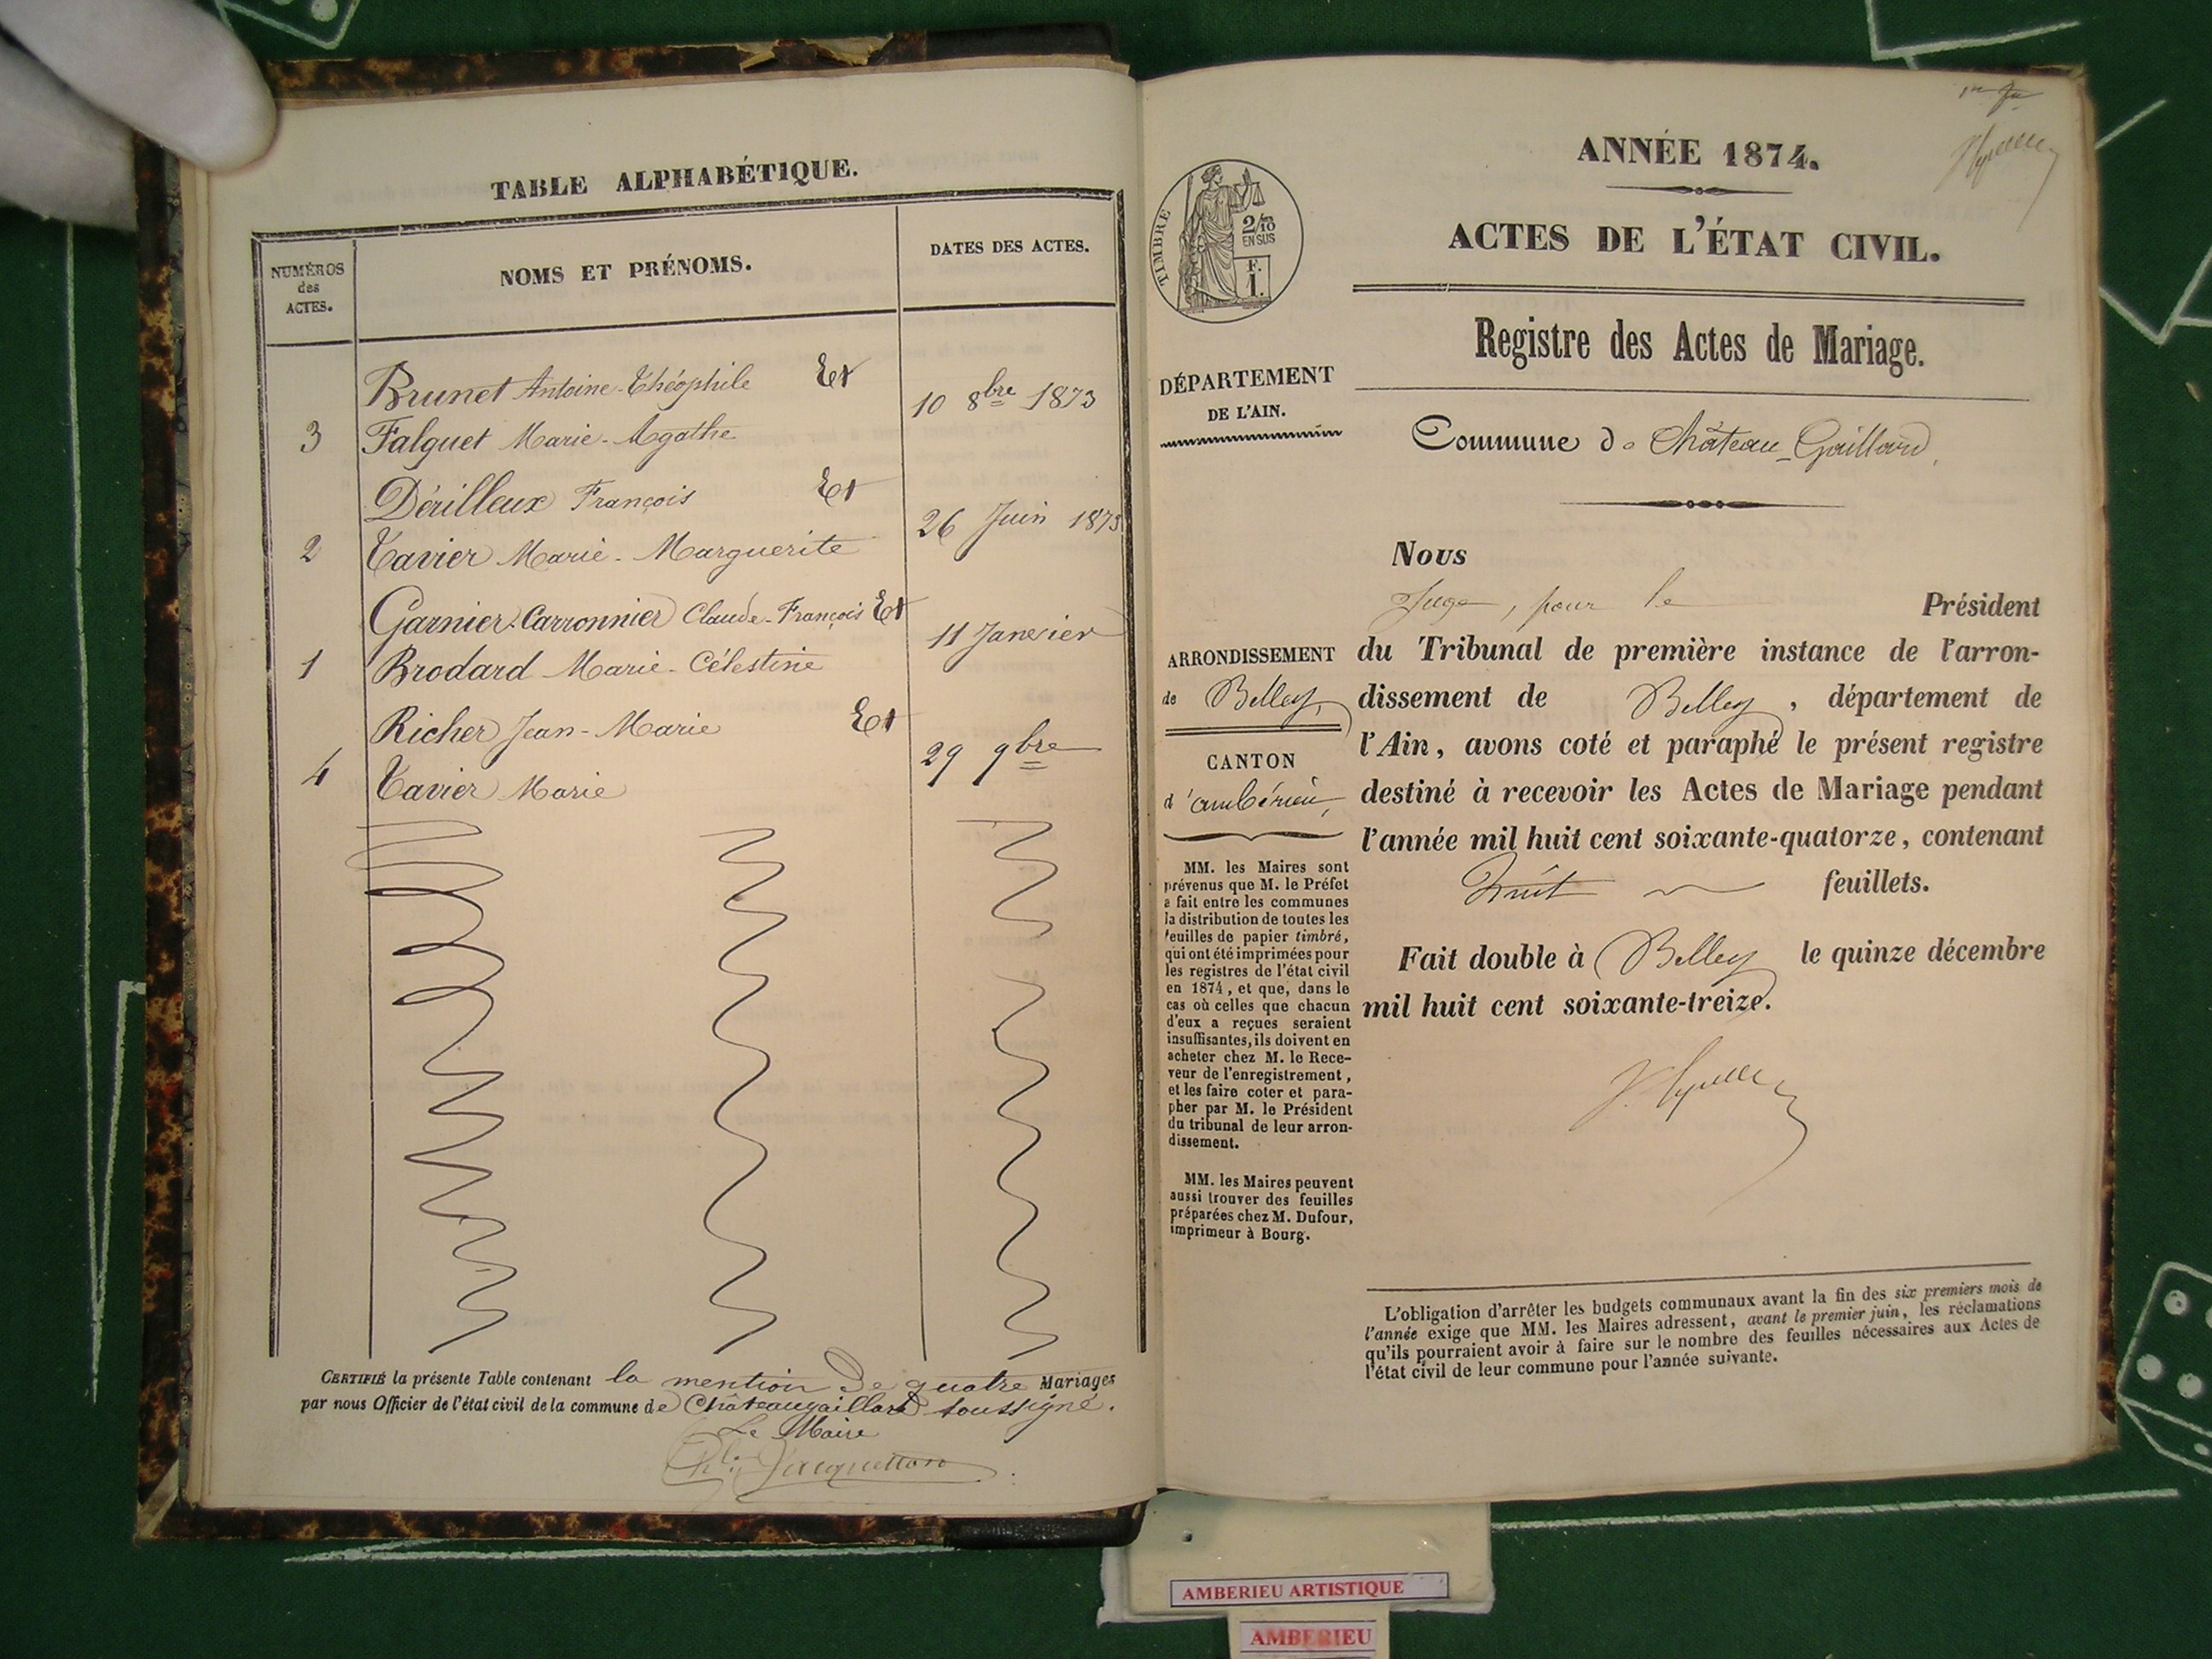 TABLE ALPHABÉTIQUE.
NUMÉROS
des
ACTES.
NOMS ET PRÉNOMS.
DATES DES ACTES.
Brunet Antoine-Théophile Et
10 8bre 1873
3 Falquet Marie-Agathe
Dérilleux François Et
26 Juin 1873
2 Tavier Marie-Marguerite
Garnier-Carronnier Claude-François Et
11 Janvier
1 Brodard Marie-Célestine
Richer Jean-Marie Et
29 9bre
4 Tavier Marie
CERTIFIÉ la présente Table contenant la mention de quatre Mariages
par nous Officier de l'état civil de la commune de Châteaugaillard soussigné.
Le Maire
ANNÉE 1874.
ACTES DE L'ÉTAT CIVIL.
TIMBRE
2/10
EN SUS
F.
1.
Registre des Actes de Mariage.
DÉPARTEMENT
DE L'AIN.
Commune de Château-Gaillard,
Nous
Juge, pour le Président
ARRONDISSEMENT
de Belley,
CANTON
d'ambérieu,
du Tribunal de première instance de l'arron-
dissement de Belley, département de
l'Ain, avons coté et paraphé le présent registre
destiné à recevoir les Actes de Mariage pendant
l'année mil huit cent soixante-quatorze, contenant
huit feuillets.
Fait double à Belley le quinze décembre
mil huit cent soixante-treize.
MM. les Maires sont
prévenus que M. le Préfet
a fait entre les communes
la distribution de toutes les
feuilles de papier timbré,
qui ont été imprimées pour
les registres de l'état civil
en 1874, et que, dans le
cas où celles que chacun
d'eux a reçues seraient
insuffisantes, ils doivent en
acheter chez M. le Rece-
veur de l'enregistrement,
et les faire coter et para-
pher par M. le Président
du tribunal de leur arron-
dissement.
MM. les Maires peuvent
aussi trouver des feuilles
préparées chez M. Dufour,
imprimeur à Bourg.
L'obligation d'arrêter les budgets communaux avant la fin des six premiers mois de
l'année exige que MM. les Maires adressent, avant le premier juin, les réclamations
qu'ils pourraient avoir à faire sur le nombre des feuilles nécessaires aux Actes de
l'état civil de leur commune pour l'année suivante.
AMBERIEU ARTISTIQUE
AMBERIEU